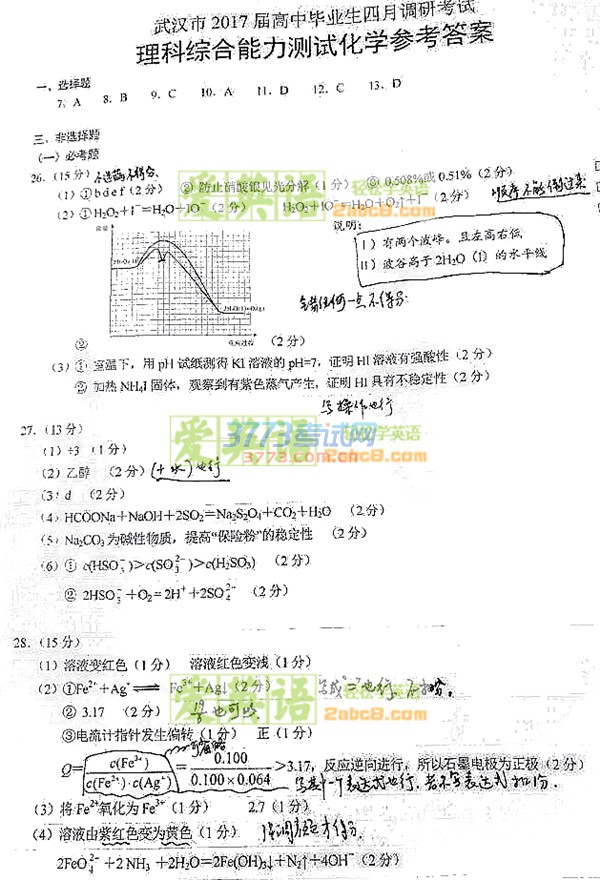 武汉市 2017 届高中毕业生四月调研考试
理科综合能力测试化学参考答案
一、选择题
7. A 8. B 9. C 10. A 11. D 12. C 13. D
三、非选择题
（一）必考题
26.（15 分）
（1）①b d e f（2 分） ② 防止硝酸银见光分解（1 分） ③ 0.508%或 0.51%（2 分）
（2）①H₂O₂+I⁻=H₂O+IO⁻（2 分） H₂O₂+IO⁻=H₂O+O₂↑+I⁻（2 分） 顺序不能倒过来
说明：
I）有两个波峰。且左高右低
II）波谷高于 2H₂O（l）的水平线
任何一点不得分
②（2 分）
（3）① 室温下，用 pH 试纸测得 KI 溶液的 pH=7，证明 HI 溶液有强酸性（2 分）
② 加热 NH₄I 固体，观察到有紫色蒸气产生，证明 HI 具有不稳定性（2 分）
写操作也行
27.（13 分）
（1）+3（1 分）
（2）乙醇（2 分）(+水)也行
（3）d（2 分）
（4）HCOONa+NaOH+2SO₂=Na₂S₂O₄+CO₂+H₂O（2 分）
（5）Na₂CO₃ 为碱性物质，提高“保险粉”的稳定性（2 分）
（6）① c(HSO₃⁻)>c(SO₃²⁻)>c(H₂SO₃)（2 分）
② 2HSO₃⁻+O₂=2H⁺+2SO₄²⁻（2 分）
28.（15 分）
（1）溶液变红色（1 分） 溶液红色变浅（1 分）
（2）①Fe²⁺+Ag⁺⇌Fe³⁺+Ag↓（2 分） 写成"="也行，不扣分。
② 3.17（2 分） 也可以
③电流计指针发生偏转（1 分） 正（1 分）
Q=c(Fe³⁺)/c(Fe²⁺)·c(Ag⁺)=0.100/0.100×0.064>3.17，反应逆向进行，所以石墨电极为正极（2 分）
写其中一个表达式也行，若不写表达式扣1分
（3）将 Fe²⁺氧化为 Fe³⁺（1 分） 2.7（1 分）
（4）溶液由紫红色变为黄色（1 分）
2FeO₄²⁻+2NH₃+2H₂O=2Fe(OH)₃↓+N₂↑+4OH⁻（2 分）
爱英语
轻松学英语
2abc8.com
3773考试网